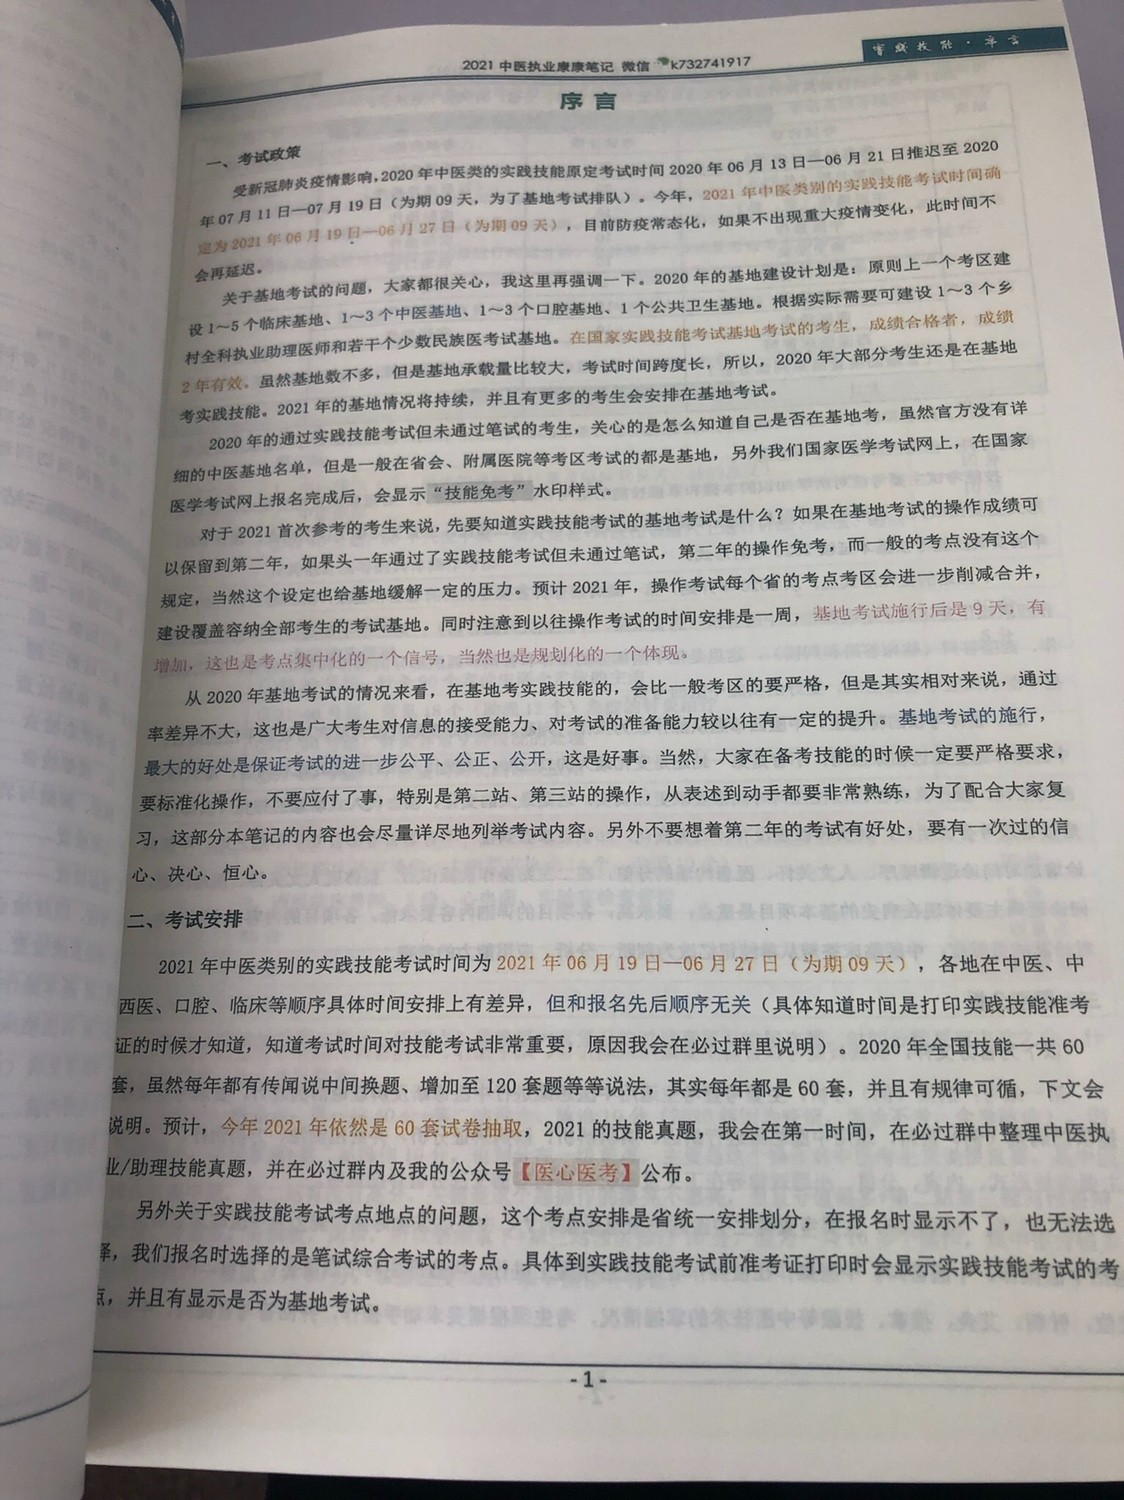 实践技能·序言
2021 中医执业康康笔记 微信 k732741917
序言
一、考试政策
受新冠肺炎疫情影响，2020 年中医类的实践技能原定考试时间 2020 年 06 月 13 日—06 月 21 日推迟至 2020
年 07 月 11 日—07 月 19 日（为期 09 天，为了基地考试排队）。今年，2021 年中医类别的实践技能考试时间确
定为 2021 年 06 月 19 日—06 月 27 日（为期 09 天），目前防疫常态化，如果不出现重大疫情变化，此时间不
会再延迟。
关于基地考试的问题，大家都很关心，我这里再强调一下。2020 年的基地建设计划是：原则上一个考区建
设 1～5 个临床基地、1～3 个中医基地、1～3 个口腔基地、1 个公共卫生基地。根据实际需要可建设 1～3 个乡
村全科执业助理医师和若干个少数民族医考试基地。在国家实践技能考试基地考试的考生，成绩合格者，成绩
2 年有效。虽然基地数不多，但是基地承载量比较大，考试时间跨度长，所以，2020 年大部分考生还是在基地
考实践技能。2021 年的基地情况将持续，并且有更多的考生会安排在基地考试。
2020 年的通过实践技能考试但未通过笔试的考生，关心的是怎么知道自己是否在基地考，虽然官方没有详
细的中医基地名单，但是一般在省会、附属医院等考区考试的都是基地，另外我们国家医学考试网上，在国家
医学考试网上报名完成后，会显示“技能免考”水印样式。
对于 2021 首次参考的考生来说，先要知道实践技能考试的基地考试是什么？如果在基地考试的操作成绩可
以保留到第二年，如果头一年通过了实践技能考试但未通过笔试，第二年的操作免考，而一般的考点没有这个
规定，当然这个设定也给基地缓解一定的压力。预计 2021 年，操作考试每个省的考点考区会进一步削减合并，
建设覆盖容纳全部考生的考试基地。同时注意到以往操作考试的时间安排是一周，基地考试施行后是 9 天，有
增加，这也是考点集中化的一个信号，当然也是规划化的一个体现。
从 2020 年基地考试的情况来看，在基地考实践技能的，会比一般考区的要严格，但是其实相对来说，通过
率差异不大，这也是广大考生对信息的接受能力、对考试的准备能力较以往有一定的提升。基地考试的施行，
最大的好处是保证考试的进一步公平、公正、公开，这是好事。当然，大家在备考技能的时候一定要严格要求，
要标准化操作，不要应付了事，特别是第二站、第三站的操作，从表述到动手都要非常熟练，为了配合大家复
习，这部分本笔记的内容也会尽量详尽地列举考试内容。另外不要想着第二年的考试有好处，要有一次过的信
心、决心、恒心。
二、考试安排
2021 年中医类别的实践技能考试时间为 2021 年 06 月 19 日—06 月 27 日（为期 09 天），各地在中医、中
西医、口腔、临床等顺序具体时间安排上有差异，但和报名先后顺序无关（具体知道时间是打印实践技能准考
证的时候才知道，知道考试时间对技能考试非常重要，原因我会在必过群里说明）。2020 年全国技能一共 60
套，虽然每年都有传闻说中间换题、增加至 120 套题等等说法，其实每年都是 60 套，并且有规律可循，下文会
说明。预计，今年 2021 年依然是 60 套试卷抽取，2021 的技能真题，我会在第一时间，在必过群中整理中医执
业/助理技能真题，并在必过群内及我的公众号【医心医考】公布。
另外关于实践技能考试考点地点的问题，这个考点安排是省统一安排划分，在报名时显示不了，也无法选
择，我们报名时选择的是笔试综合考试的考点。具体到实践技能考试前准考证打印时会显示实践技能考试的考
点，并且有显示是否为基地考试。
- 1 -